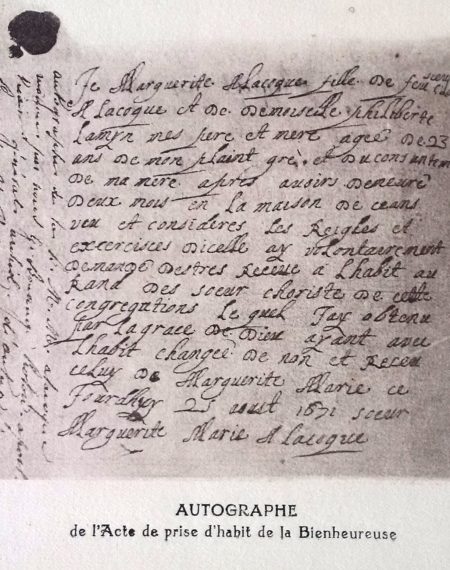 Je Marguerite Alacoque fille de feu
Alacoque et de demoiselle philiberte
Lamyn mes pere et mere agee de 23
ans de mon plaint gré et du consantement
de ma mere apres avoirs demeuré
deux mois en la maison de ceans
veu et considerés les Reigles et
excercisces dicelle ay volontairement
demandé destres Receue a Lhabit au
Rand des soeur choriste de cette
congregations Le quel Jay obtenu
par la grace de Dieu ayant avec
Lhabit changée de non et Receu
celuy de Marguerite Marie ce
Jourdhuy 25 aoust 1671 soeur
Marguerite Marie Alacoque
AUTOGRAPHE
de l'Acte de prise d'habit de la Bienheureuse